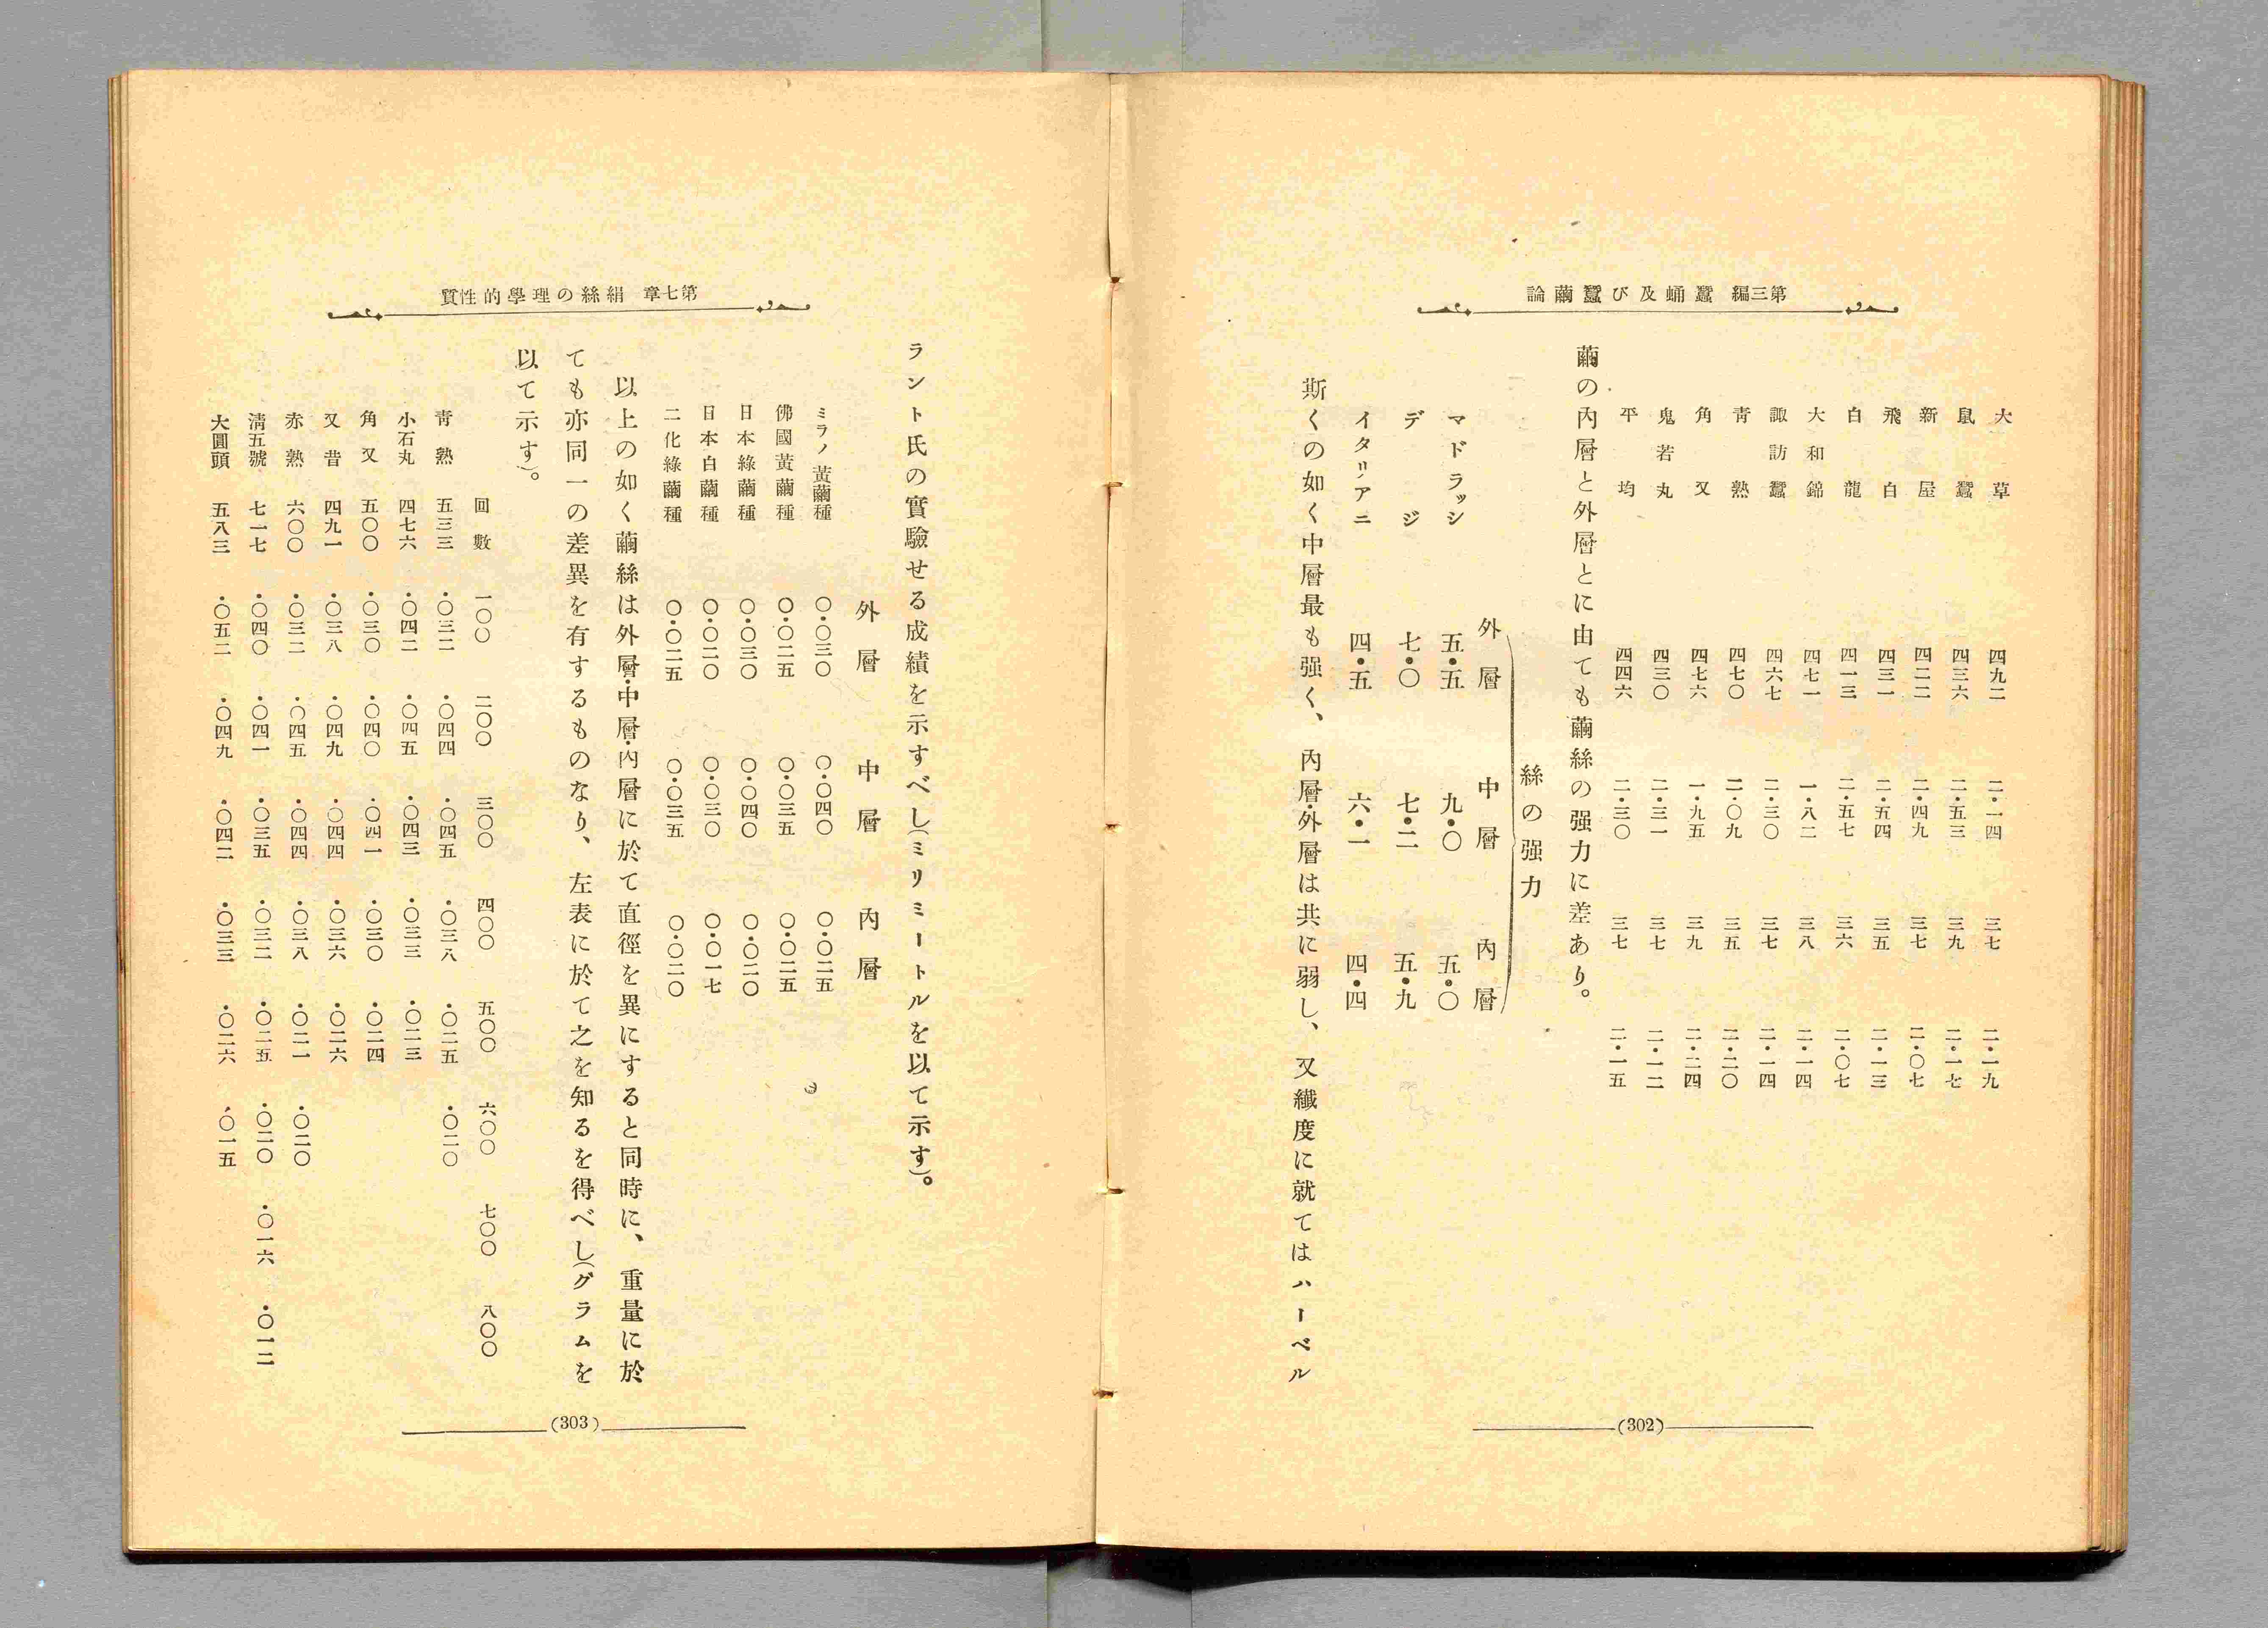 第三編 蠶蛹及び蠶繭論
大草 四九二 二・一四 三七 二・一九
鼠蠶 四三六 二・五三 三九 二・一七
新屋 四二二 二・四九 三七 二・〇七
飛白 四三一 二・五四 三五 二・一三
白龍 四一三 二・五七 三六 二・〇七
大和錦 四七一 一・八二 三八 二・一四
諏訪蠶 四六七 二・三〇 三七 二・一四
靑熟 四七〇 二・〇九 三五 二・二〇
角又 四七六 一・九五 三九 二・二四
鬼若丸 四三〇 二・三一 三七 二・一二
平均 四四六 二・三〇 三七 二・一五
繭の內層と外層とに由ても繭絲の强力に差あり。
絲の强力
外層 中層 內層
マドラッシ 五・五 九・〇 五・〇
デジ 七・〇 七・二 五・九
イタリアニ 四・五 六・一 四・四
斯くの如く中層最も强く、內層・外層は共に弱し、又纖度に就てはハーベル
(302)
第七章 絹絲の理學的性質
ラント氏の實驗せる成績を示すべし(ミリミートルを以て示す)。
外層 中層 內層
ミラノ黃繭種 〇・〇三〇 〇・〇四〇 〇・〇二五
佛國黃繭種 〇・〇二五 〇・〇三五 〇・〇二五
日本綠繭種 〇・〇三〇 〇・〇四〇 〇・〇二〇
日本白繭種 〇・〇二〇 〇・〇三〇 〇・〇一七
二化綠繭種 〇・〇二五 〇・〇三五 〇・〇二〇
以上の如く繭絲は外層・中層・內層に於て直徑を異にすると同時に、重量に於
ても亦同一の差異を有するものなり、左表に於て之を知るを得べし(グラムを
以て示す)。
回數 一〇〇 二〇〇 三〇〇 四〇〇 五〇〇 六〇〇 七〇〇 八〇〇
靑熟 五三三 ・〇三二 ・〇四四 ・〇四五 ・〇三八 ・〇二五 ・〇二〇
小石丸 四七六 ・〇四二 ・〇四五 ・〇四三 ・〇三三 ・〇二三
角又 五〇〇 ・〇三〇 ・〇四〇 ・〇四一 ・〇三〇 ・〇二四
又昔 四九一 ・〇三八 ・〇四九 ・〇四四 ・〇三六 ・〇二六
赤熟 六〇〇 ・〇三二 ・〇四五 ・〇四四 ・〇三八 ・〇二一 ・〇二〇
淸五號 七一七 ・〇四〇 ・〇四一 ・〇三五 ・〇三二 ・〇二五 ・〇二〇 ・〇一六 ・〇一二
大圓頭 五八三 ・〇五二 ・〇四九 ・〇四二 ・〇三三 ・〇二六 ・〇一五
(303)